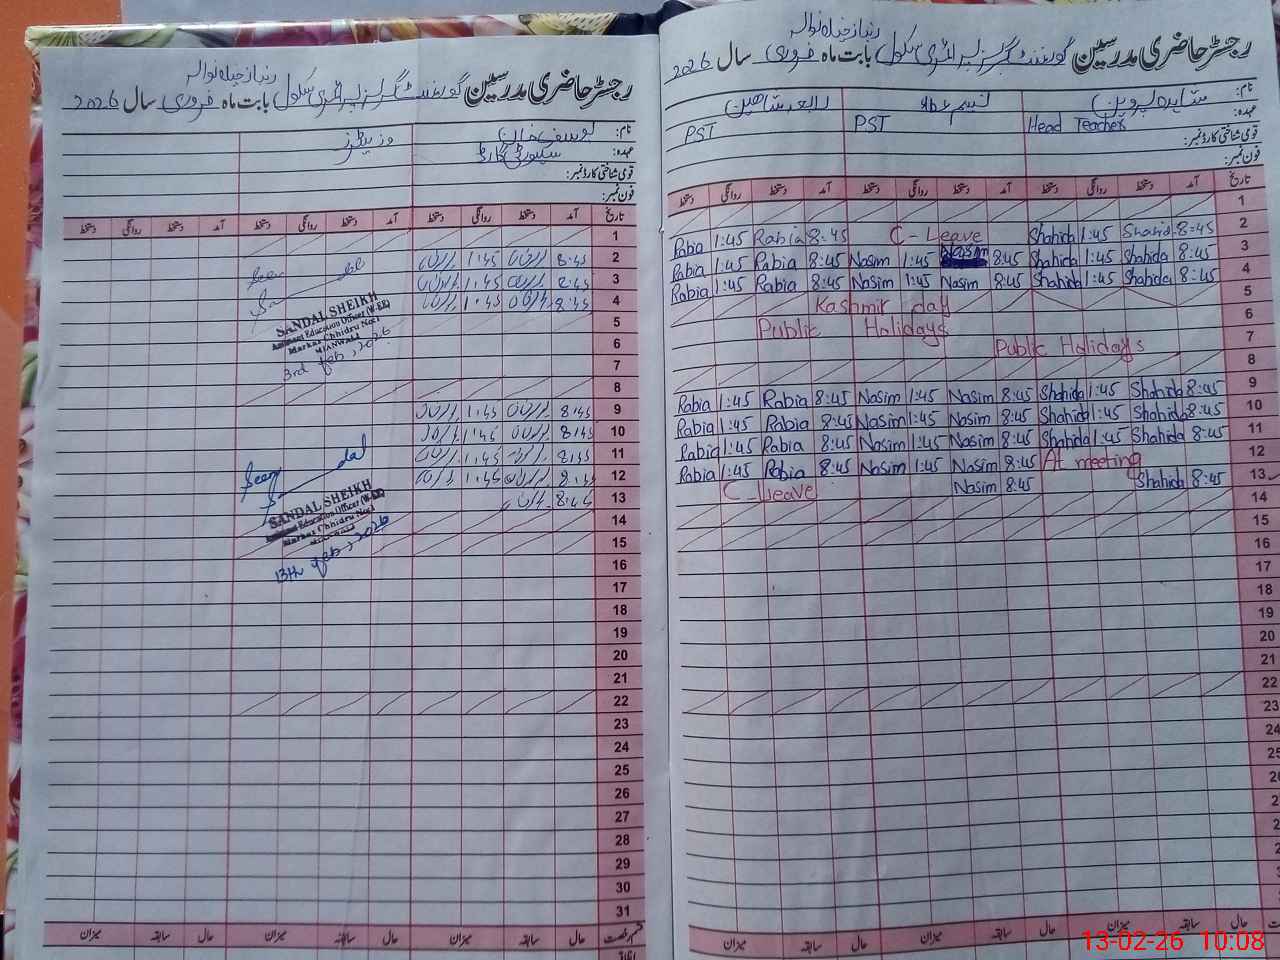 رجسٹر حاضری مدرسین گورنمنٹ گرلز پرائمری سکول بابت ماہ فروری سال 2026
نام: شاہدہ پروین
رابعہ شاہین
عہدہ: Head Teacher PST PST
قومی شناختی کارڈ نمبر:
فون نمبر:
تاریخ آمد دستخط روانگی دستخط آمد دستخط روانگی دستخط آمد دستخط روانگی دستخط
1
2 8:45 Shahida 1:45 Shahida C-Leave 8:45 Rabia 1:45 Rabia
3 8:45 Shahida 1:45 Shahida 8:45 Nasim 1:45 Nasim 8:45 Rabia 1:45 Rabia
4 8:45 Shahida 1:45 Shahida 8:45 Nasim 1:45 Nasim 8:45 Rabia 1:45 Rabia
5 Kashmir day
6 Public Holidays
7 Public Holidays
8
9 8:45 Shahida 1:45 Shahida 8:45 Nasim 1:45 Nasim 8:45 Rabia 1:45 Rabia
10 8:45 Shahida 1:45 Shahida 8:45 Nasim 1:45 Nasim 8:45 Rabia 1:45 Rabia
11 8:45 Shahida 1:45 Shahida 8:45 Nasim 1:45 Nasim 8:45 Rabia 1:45 Rabia
12 At meeting 8:45 Nasim 1:45 Nasim 8:45 Rabia 1:45 Rabia
13 8:45 Shahida 8:45 Nasim C-Leave
14
15
16
17
18
19
20
21
22
23
24
حال سابقہ میزان حال سابقہ میزان حال سابقہ میزان
رجسٹر حاضری مدرسین گورنمنٹ گرلز پرائمری سکول بابت ماہ فروری سال 2026
نام: یوسف خان
عہدہ: سیکورٹی گارڈ
وزیٹرز
قومی شناختی کارڈ نمبر:
فون نمبر:
تاریخ آمد دستخط روانگی دستخط آمد دستخط روانگی دستخط آمد دستخط روانگی دستخط
1
2 8:45 1:45
3 8:45 1:45
4 8:45 1:45
5
6
7
8
9 8:45 1:45
10 8:45 1:45
11 8:45 1:45
12 8:45 1:45
13 8:45
14
15
16
17
18
19
20
21
22
23
24
25
26
27
28
29
30
31
SANDAL SHEIKH
Assistant Education Officer (W-EE)
Markaz Chhidru No:1
MIANWALI
3rd feb, 2026
Seen
SANDAL SHEIKH
Assistant Education Officer (W-EE)
Markaz Chhidru No:1
13th feb, 2026
قسم رخصت حال سابقہ میزان حال سابقہ میزان حال سابقہ میزان
13-02-26 10:08